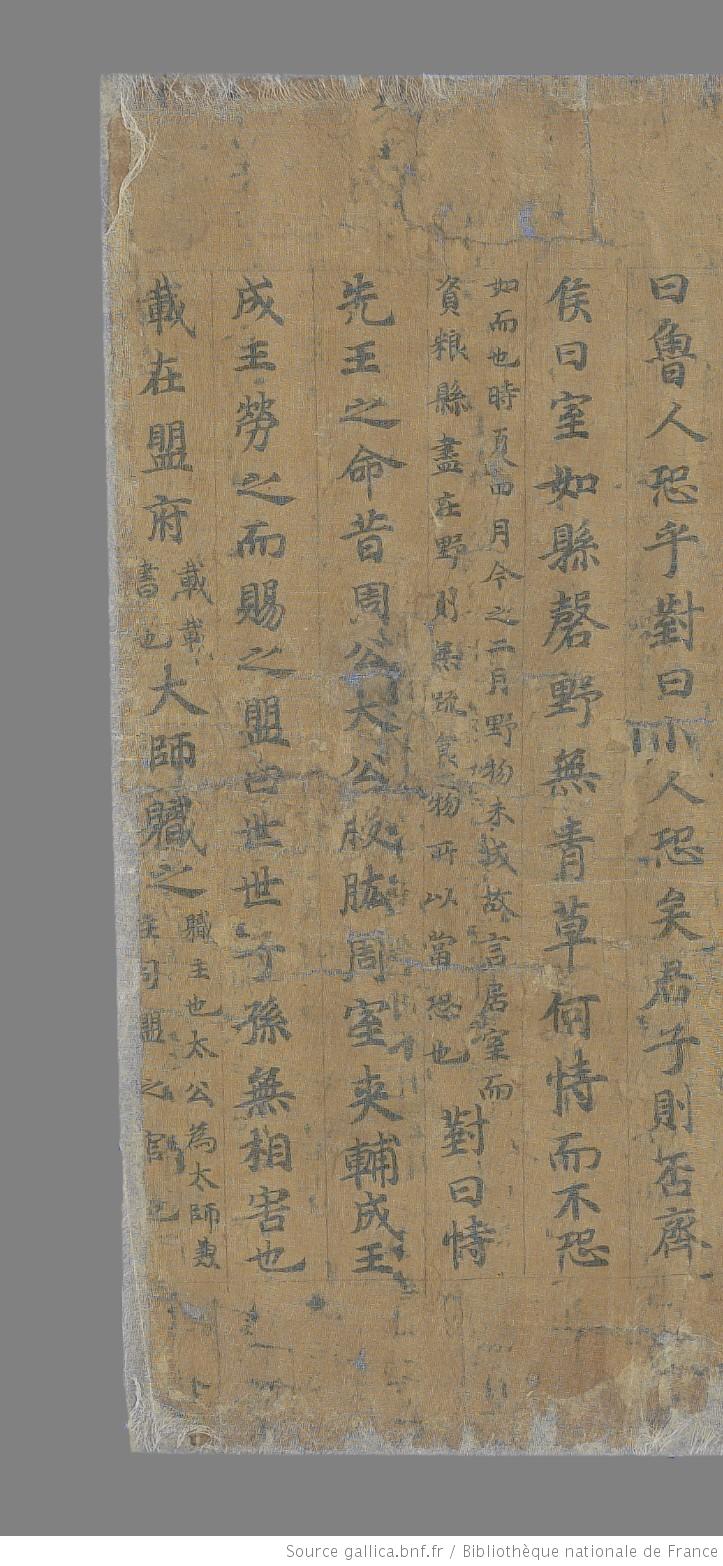 曰魯人恐乎對曰小人恐矣君子則否齊
侯曰室如縣磬野無青草何恃而不恐
如而也時夏四月今之二月野物未成故言居室而
資粮縣盡在野則無蔬食之物所以當恐也
對曰恃
先王之命昔周公大公股肱周室夾輔成王
成王勞之而賜之盟曰世世子孫無相害也
載在盟府
載載
書也
大師職之
職主也太公為太師兼
主司盟之官也
Source gallica.bnf.fr / Bibliothèque nationale de France